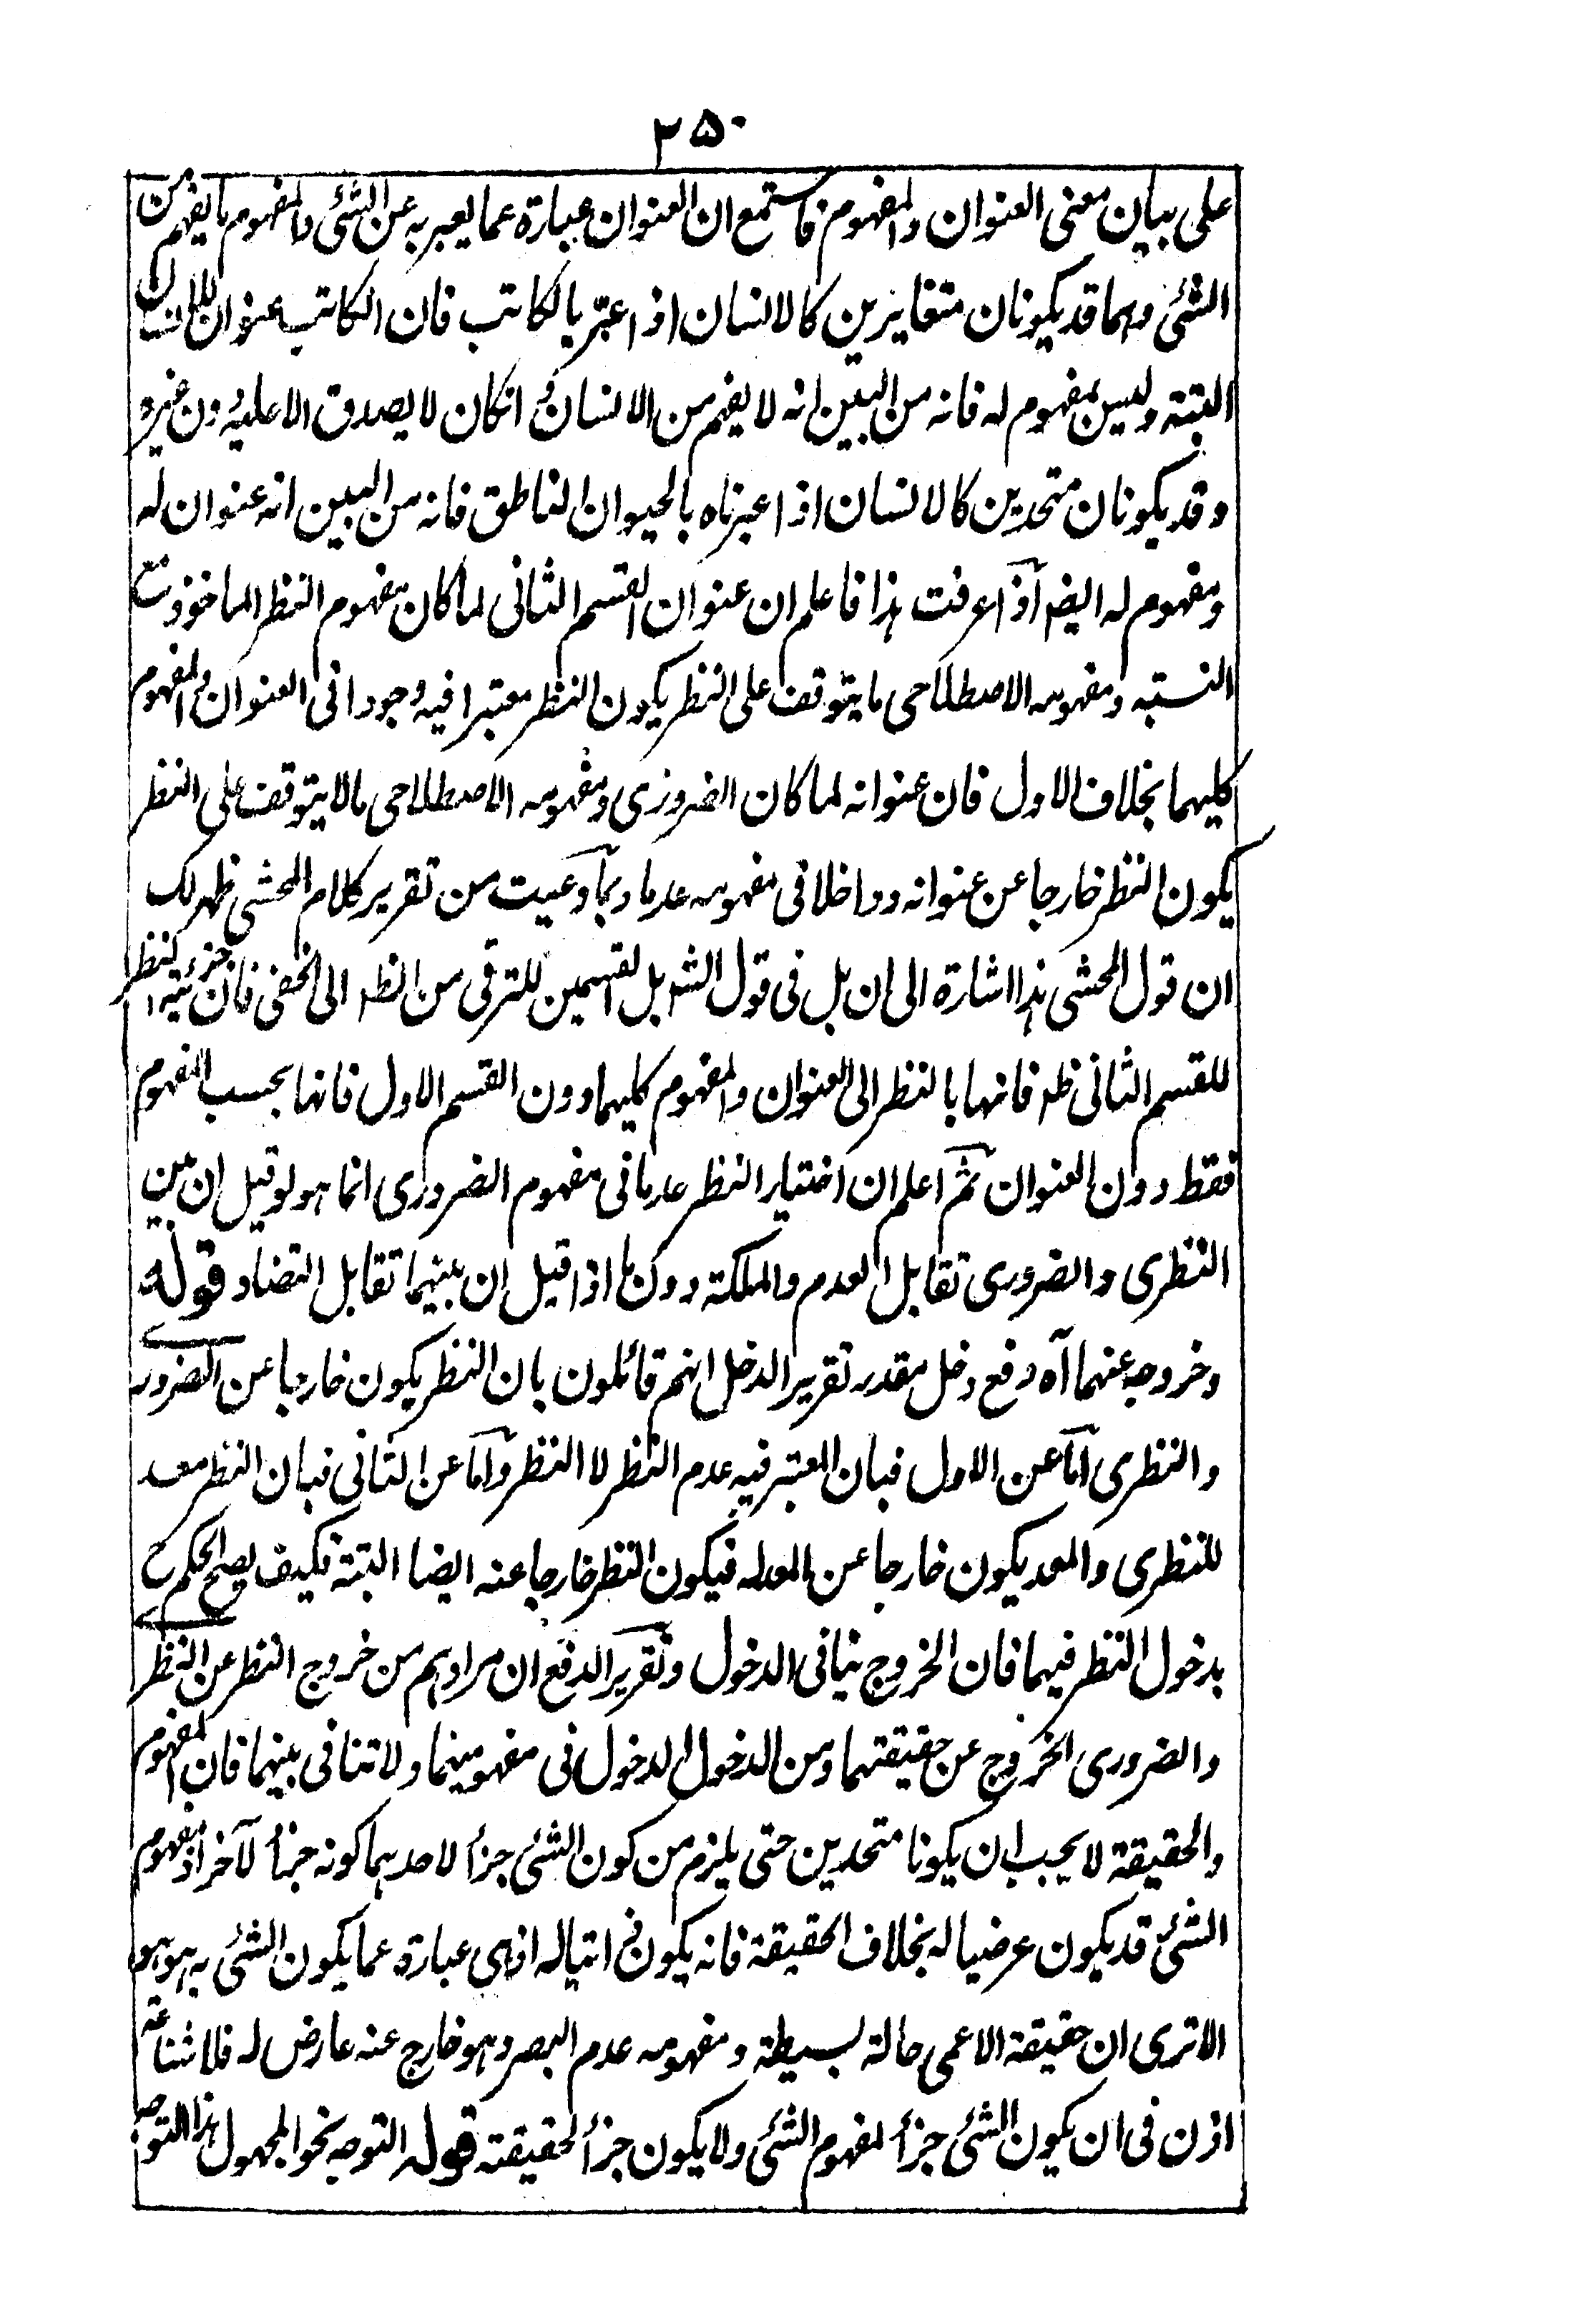 ٢٥٠
على بيان معنى العنوان والمفهوم فاستمع ان العنوان عبارة عما يعبر به عن الشئ والمفهوم ما يفهم من
الشئ وهما قد يكونان متغايرين كالانسان اذا عبّر بالكاتب فان الكاتب عنوان للانسان
البتة وليس بمفهوم له فانه من البين انه لا يفهم من الانسان وانكان لا يصدق الا عليه دون غيره
وقد يكونان متحدين كالانسان اذا عبرناه بالحيوان الناطق فانه من البين انه عنوان له
ومفهوم له ايضا اذا عرفت هذا فاعلم ان عنوان القسم الثانى لما كان مفهوم النظر الماخوذ مع
النسبة ومفهومه الاصطلاحى ما يتوقف على النظر يكون النظر معتبرا فيه وجودا فى العنوان والمفهوم
كليهما بخلاف الاول فان عنوانه لما كان الضرورى ومفهومه الاصطلاحى ما لا يتوقف على النظر
يكون النظر خارجا عن عنوانه وداخلا فى مفهومه عدما وبما وعيت من تقرير كلام المحشى ظهر لك
ان قول المحشى هذا اشارة الى ان بل فى قول الشه بل القسمين للترقى من الظه الى الخفى فان جزئية النظر
للقسم الثانى ظه فانها بالنظر الى العنوان والمفهوم كليهما دون القسم الاول فانها بحسب المفهوم
فقط دون العنوان ثم اعلم ان اختيار النظر عدما فى مفهوم الضرورى انما هو لو قيل ان بين
النظرى والضرورى تقابل العدم والملكة دون ما اذا قيل ان بينهما تقابل التضاد قوله
وخروجه عنهما آه دفع دخل مقدر تقرير الدخل انهم قائلون بان النظر يكون خارجا عن الضرورى
والنظرى اما عن الاول فبان المعتبر فيه عدم النظر لا النظر واما عن الثانى فبان النظر معد
للنظرى والمعد يكون خارجا عن المعدله فيكون النظر خارجا عنه ايضا البتة فكيف يصح الحكم ح
بدخول النظر فيهما فان الخروج ينافى الدخول وتقرير الدفع ان مرادهم من خروج النظر عن النظر
والضرورى الخروج عن حقيقتهما ومن الدخول الدخول فى مفهوميهما ولا تنافى بينهما فان المفهوم
والحقيقة لا يجب ان يكونا متحدين حتى يلزم من كون الشئ جزأ لاحدهما كونه جزأ لآخر اذ مفهوم
الشئ قد يكون عرضيا له بخلاف الحقيقة فانه يكون ذاتيا له اذ هى عبارة عما يكون الشئ به هو هو
الا ترى ان حقيقة الاعمى حالة بسيطة ومفهومه عدم البصر وهو خارج عنه عارض له فلا شناعة
اذن فى ان يكون الشئ جزأ لمفهوم الشئ ولا يكون جزأ لحقيقته قوله التوجه نحو المجهول هذا التوجه